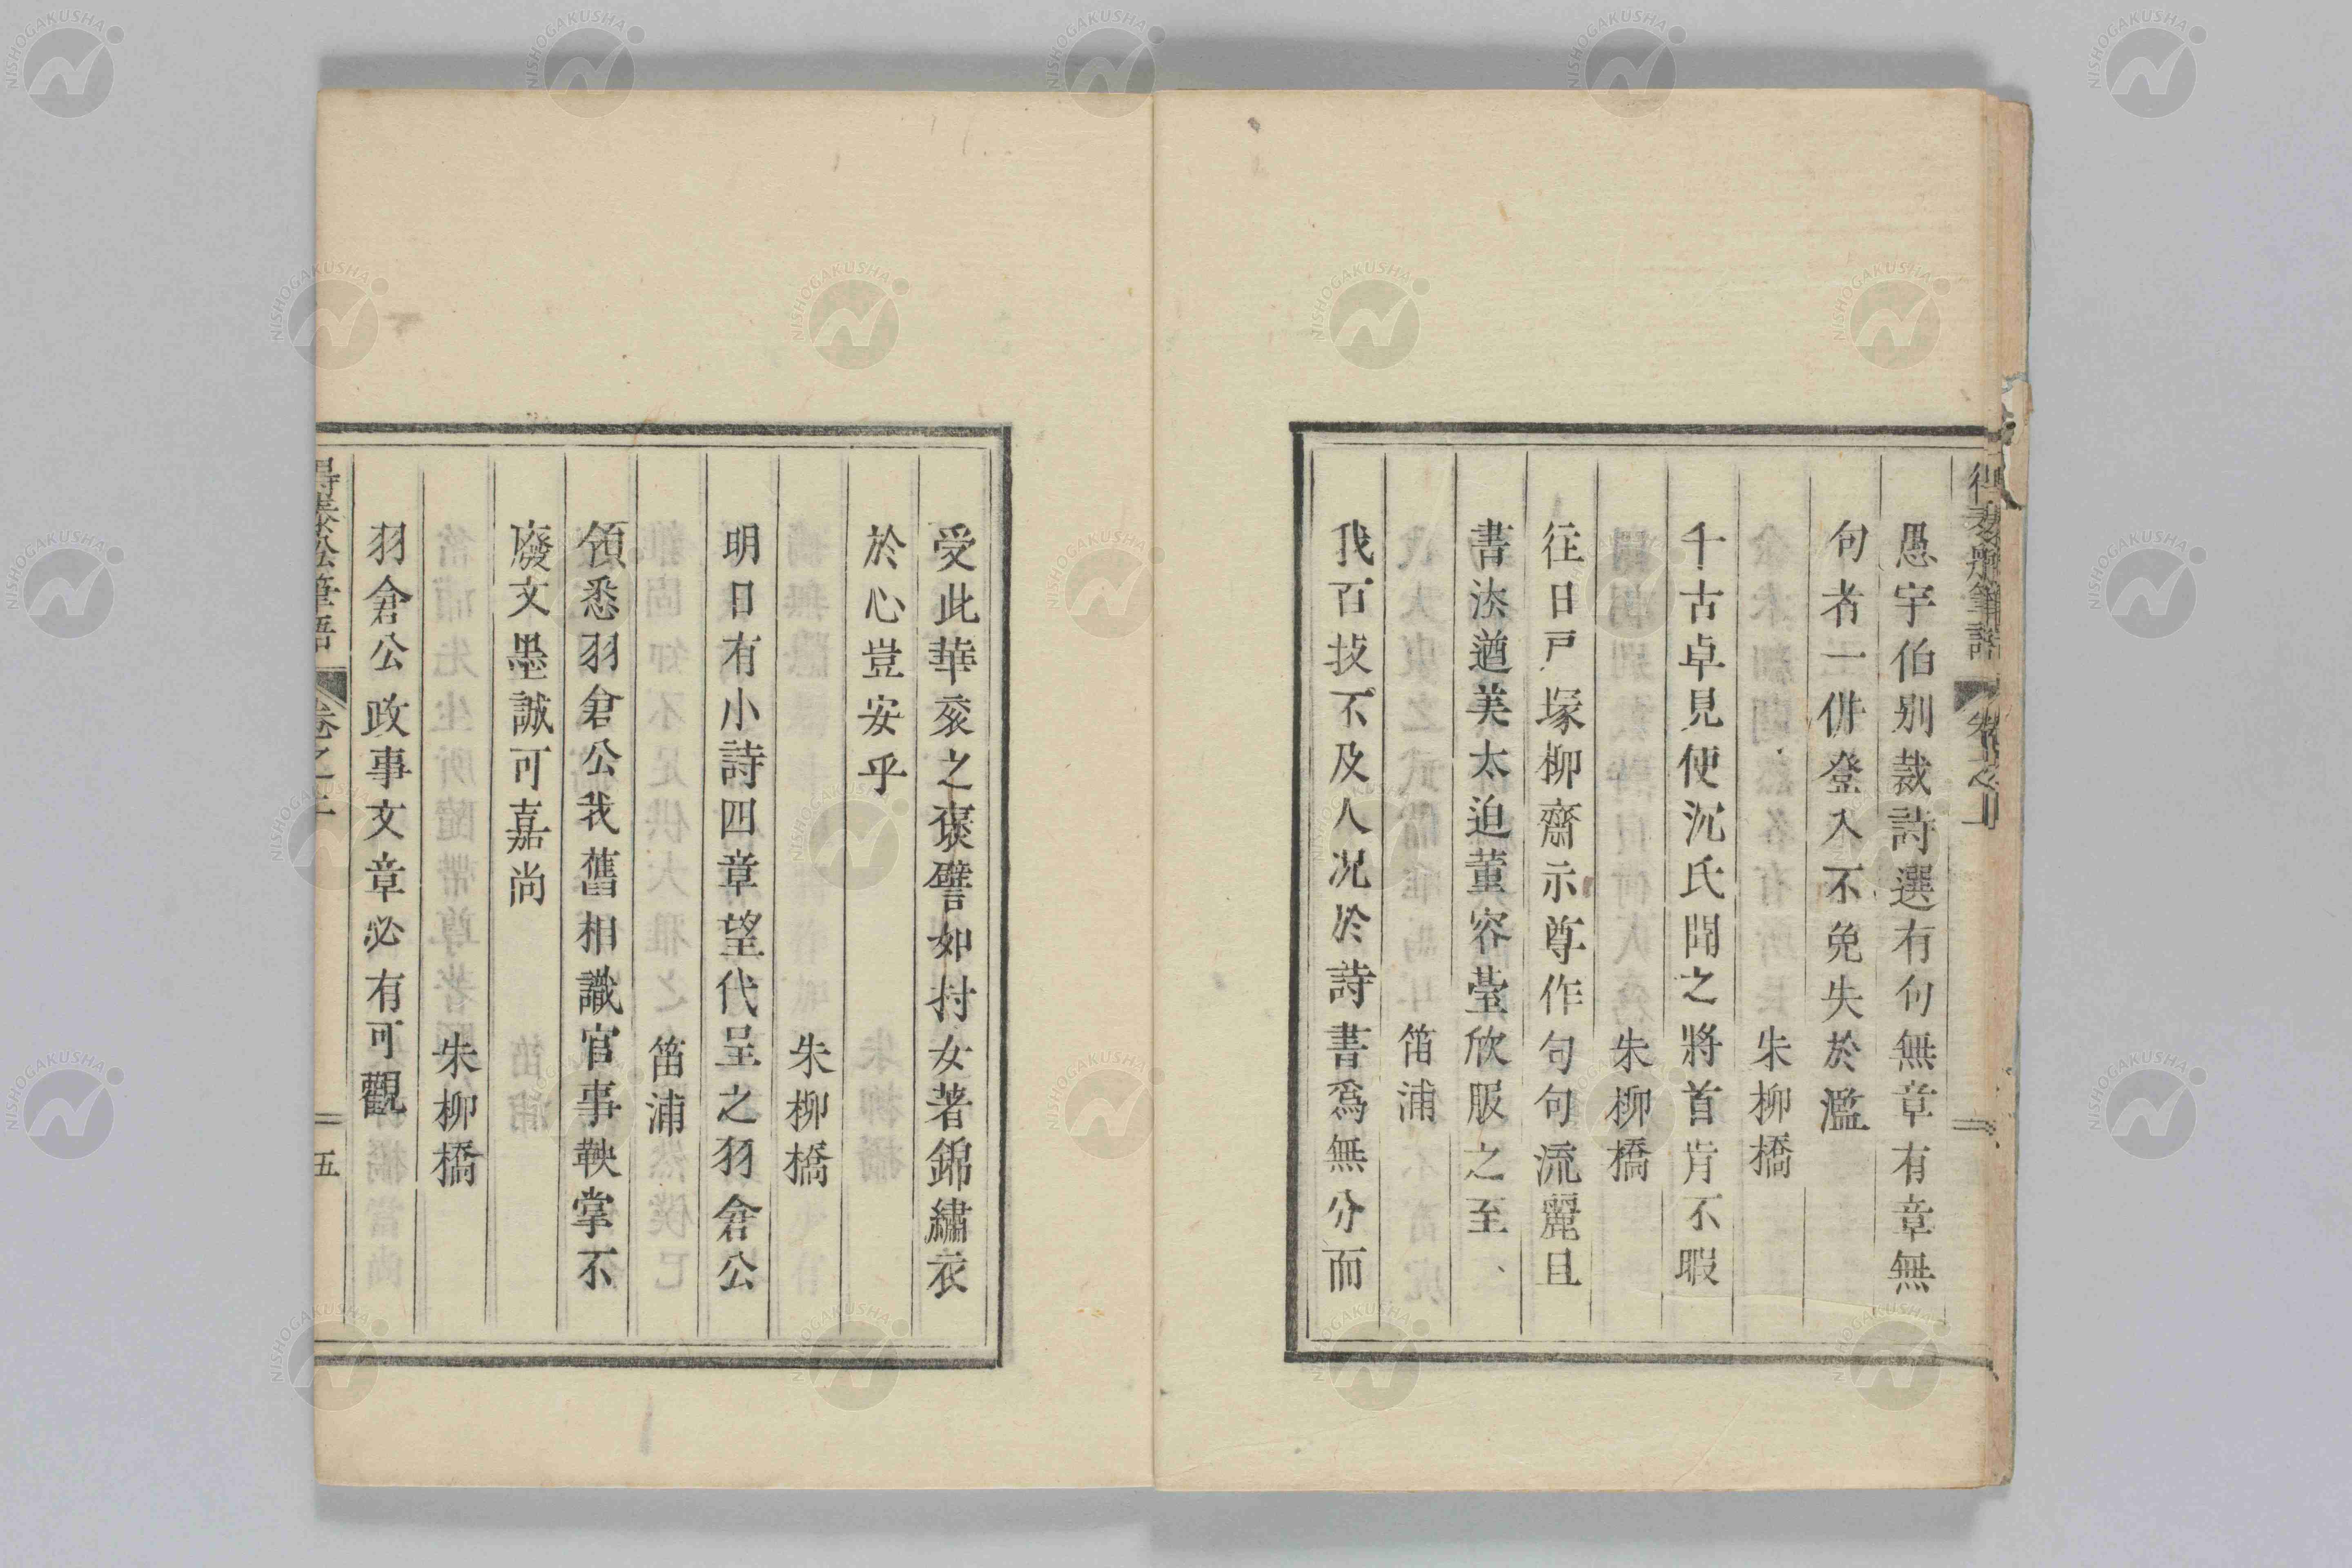 愚宇伯別裁詩選有句無章有章無
句者一併登入不免失於濫
朱柳橋
千古卓見使沉氏聞之將首肯不暇
朱柳橋
往日戸塚柳齋示尊作句句流麗且
書法遒美太迫董容臺欣服之至
笛浦
我百技不及人况於詩書爲無分而
受此華袞之褒譬如村女著錦繡衣
於心豈安乎
朱柳橋
明日有小詩四章望代呈之羽倉公
笛浦
領悉羽倉公我舊相識官事鞅掌不
廢文墨誠可嘉尚
朱柳橋
羽倉公政事文章必有可觀
得泰船筆語
卷之上
五
NISHOGAKUSHA